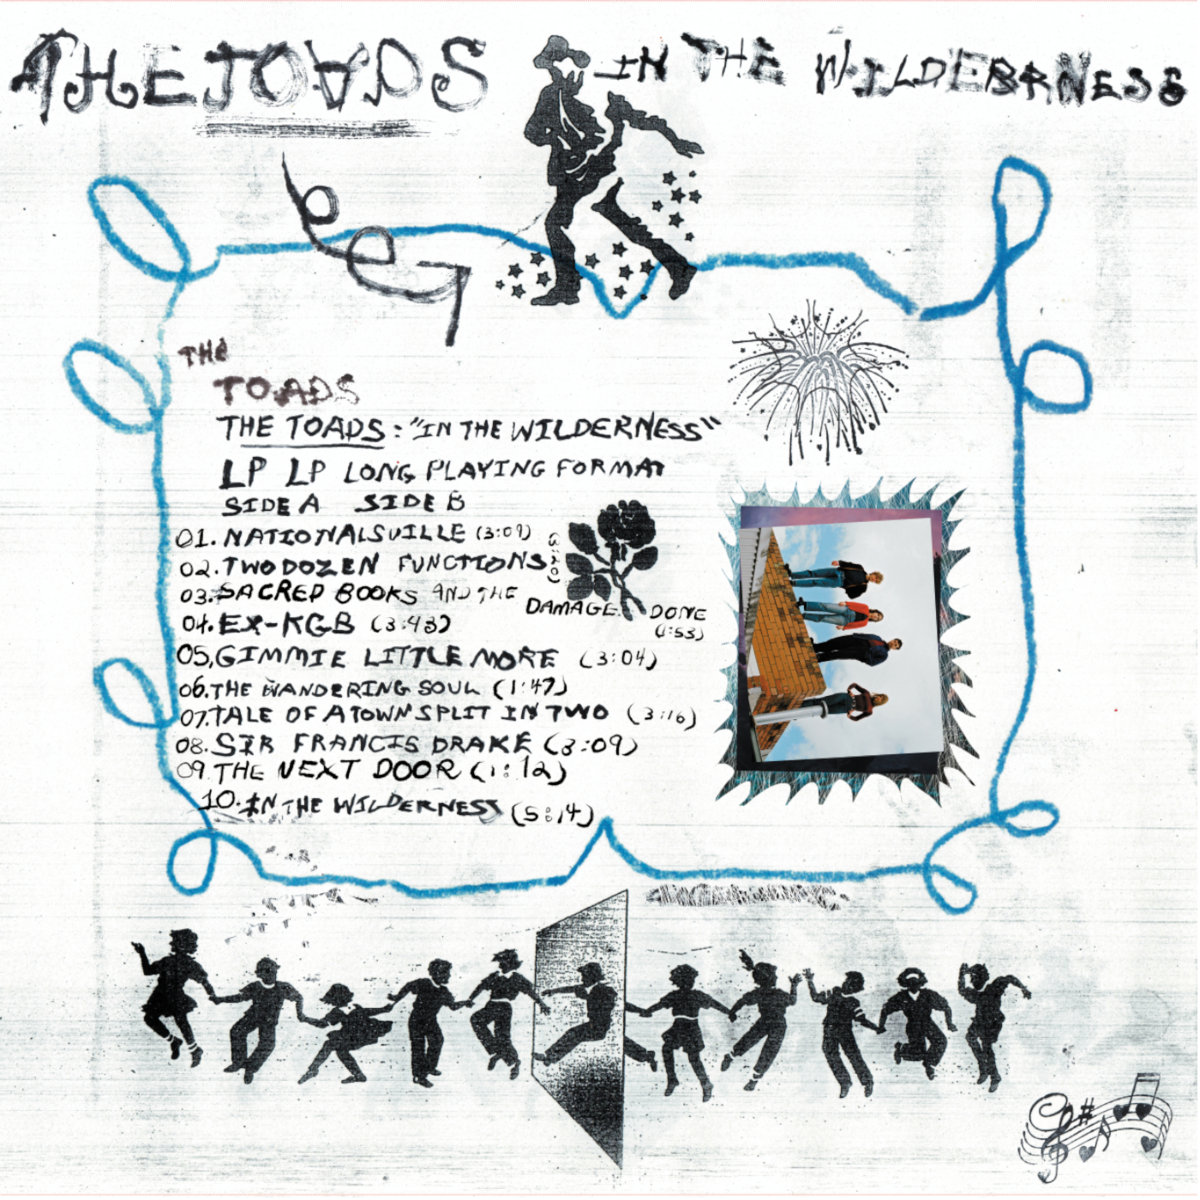 THE TOADS IN THE WILDERNESS
THE
TOADS
THE TOADS : "IN THE WILDERNESS"
LP LP LONG PLAYING FORMAT
SIDE A SIDE B
01. NATIONALSVILLE (3:09)
02. TWO DOZEN FUNCTIONS
03. SACRED BOOKS AND THE DAMAGE DONE (1:53)
04. EX-KGB (3:43)
05. GIMMIE LITTLE MORE (3:04)
06. THE WANDERING SOUL (1:47)
07. TALE OF A TOWN SPLIT IN TWO (3:16)
08. SIR FRANCIS DRAKE (3:09)
09. THE NEXT DOOR (1:12)
10. IN THE WILDERNESS (5:14)